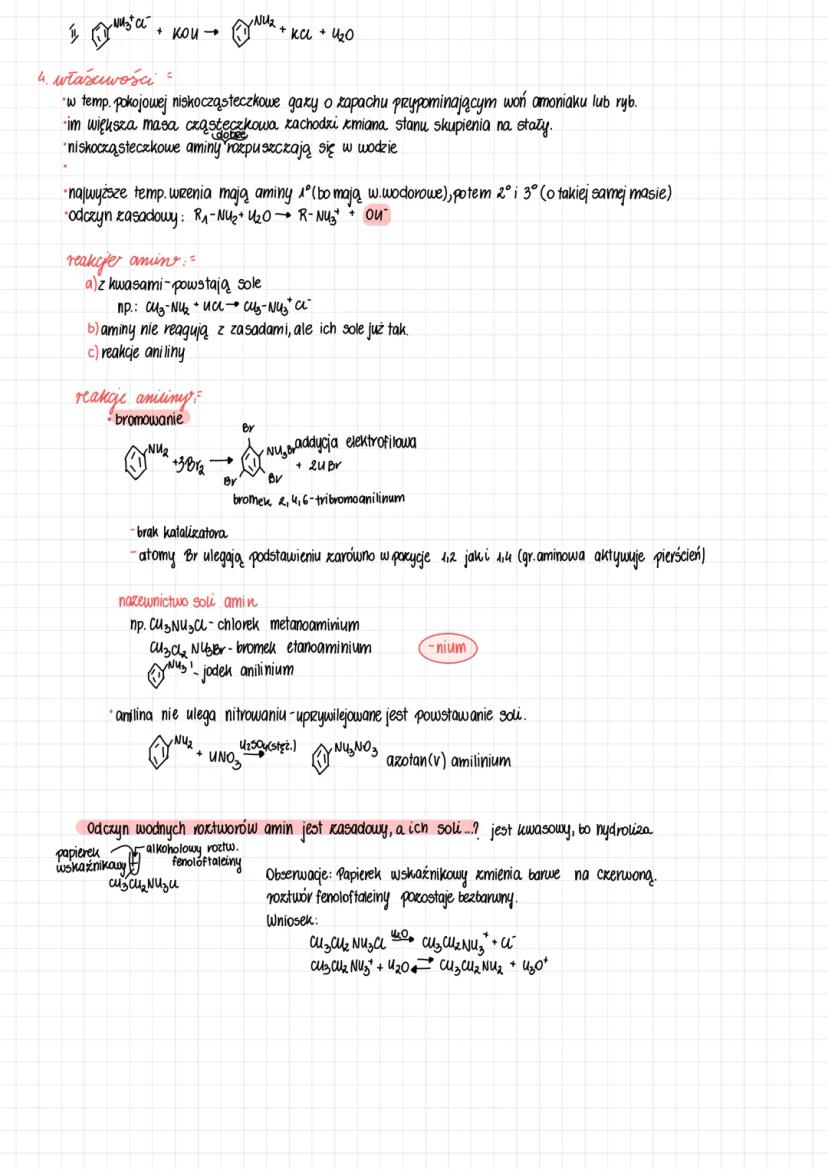 ii, NH₃⁺Cl⁻ + KOH → NH₂ + KCl + H₂O
4. właściwości =
• w temp. pokojowej niskocząsteczkowe gazy o zapachu przypominającym woń amoniaku lub ryb.
• im większa masa cząsteczkowa zachodzi zmiana stanu skupienia na stały.
dobrze
• niskocząsteczkowe aminy rozpuszczają się w wodzie
•
• najwyższe temp. wrzenia mają aminy 1° (bo mają w. wodorowe), potem 2° i 3° (o takiej samej masie)
• odczyn zasadowy: R₁-NH₂ + H₂O → R-NH₃⁺ + OH⁻
reakcje amin: =
a) z kwasami - powstają sole
np.: CH₃-NH₂ + HCl → CH₃-NH₃⁺Cl⁻
b) aminy nie reagują z zasadami, ale ich sole już tak.
c) reakcje aniliny
reakcje aniliny: =
• bromowanie
NH₂ +3Br₂ → Br Br Br NH₃Br addycja elektrofilowa
+ 2HBr
bromek 2,4,6-tribromoanilinum
- brak katalizatora
- atomy Br ulegają podstawieniu zarówno w pozycje 1,2 jak i 1,4 (gr. aminowa aktywuje pierścień)
nazewnictwo soli amin
np. CH₃NH₃Cl - chlorek metanoaminium
CH₃CH₂NH₃Br - bromek etanoaminium -nium
NH₃I - jodek anilinium
• anilina nie ulega nitrowaniu - uprzywilejowane jest powstawanie soli.
NH₂ + HNO₃ H₂SO₄(stęż.) → NH₃NO₃ azotan(V) amilinium
Odczyn wodnych roztworów amin jest zasadowy, a ich soli ...? jest kwasowy, bo hydroliza
papierek wskaźnikowy
alkoholowy roztw. fenoloftaleiny
CH₃CH₂NH₃Cl
Obserwacje: Papierek wskaźnikowy zmienia barwe na czerwoną.
roztwór fenoloftaleiny pozostaje bezbarwny.
Wniosek:
CH₃CH₂NH₃Cl H₂O → CH₃CH₂NH₃⁺ + Cl⁻
CH₃CH₂NH₃⁺ + H₂O ⇄ CH₃CH₂NH₂ + H₃O⁺